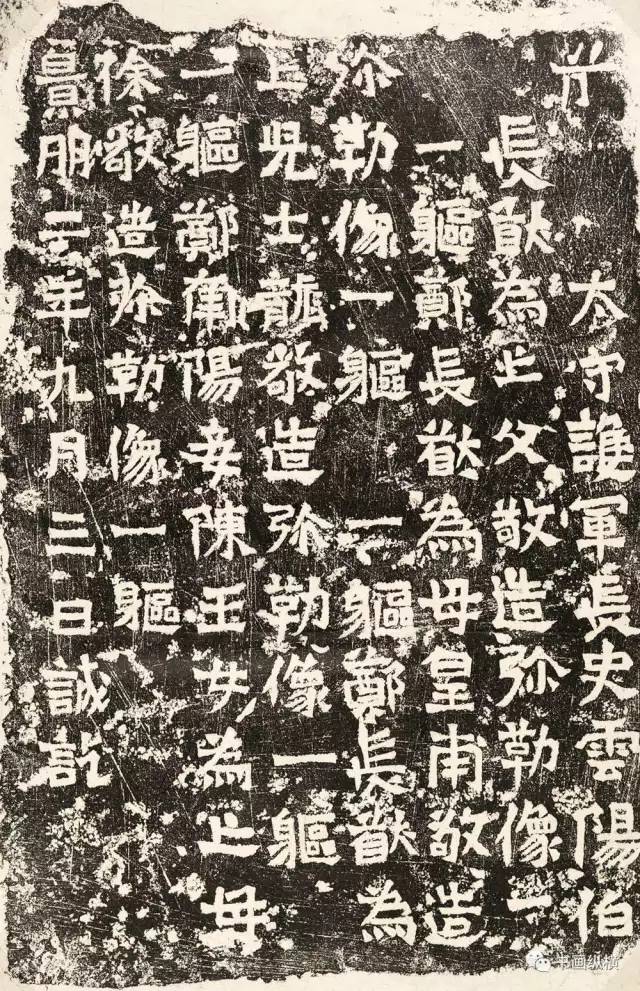 前 太守護軍長史雲陽伯
長猷為亡父敬造弥勒像一
一軀鄭長猷為母皇甫敬造
弥勒像一軀 一軀鄭長猷為
亡兒士龍敬造弥勒像一軀
一軀鄭南陽妾陳玉女為亡母
徐敬造弥勒像一軀
景明二年九月三日誠訖
书画纵横